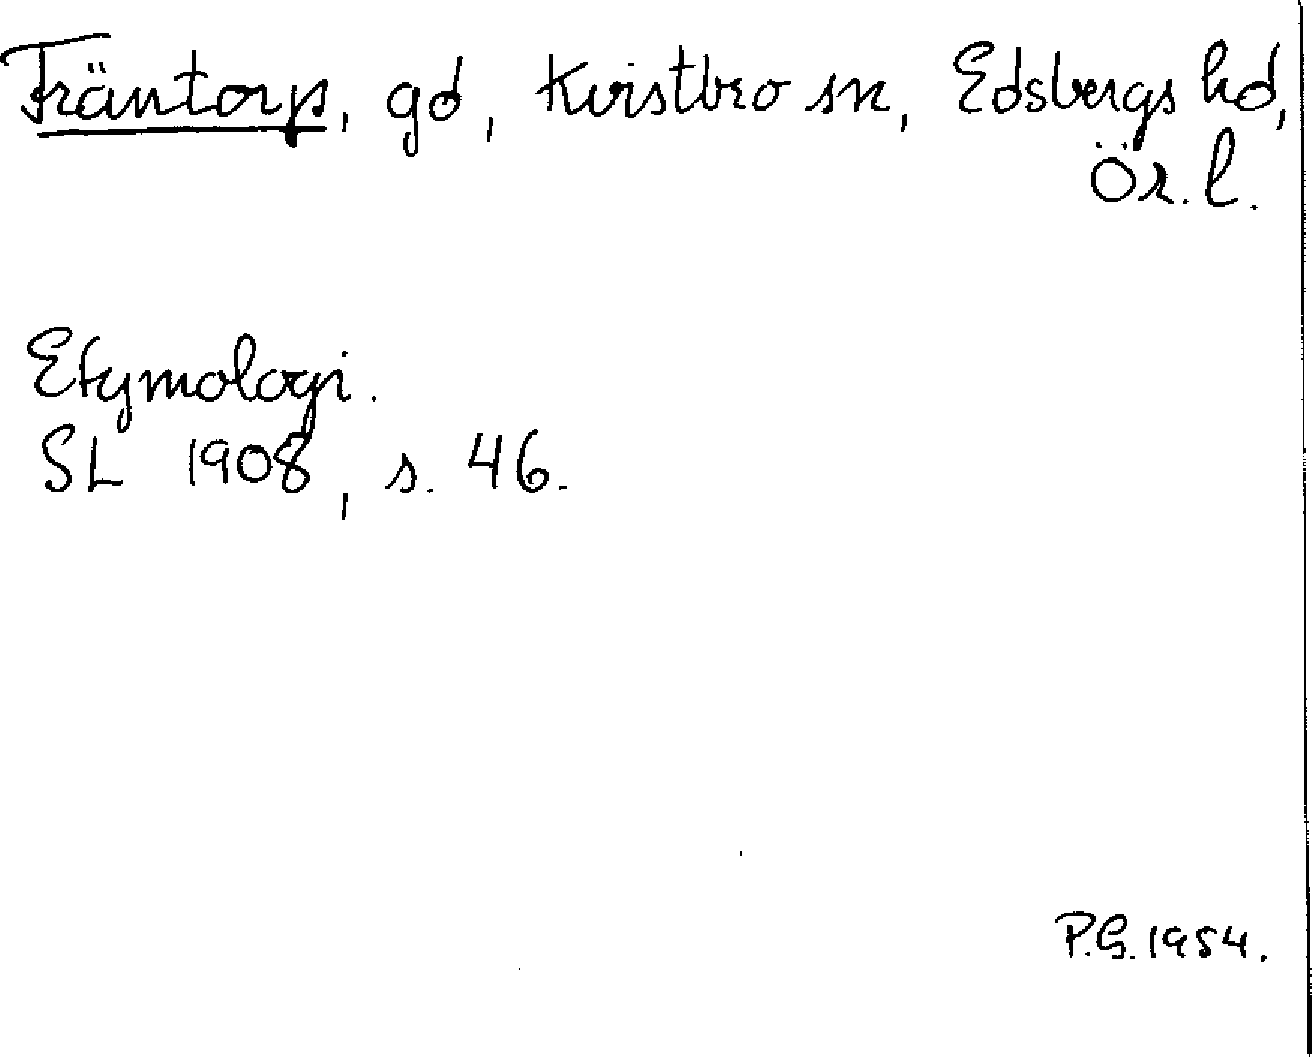 Träntorp, gd, Kvistbro sn, Edsbergs hd,
Ör. l.
Etymologi.
SL 1908, s. 46.
P.G. 1954.